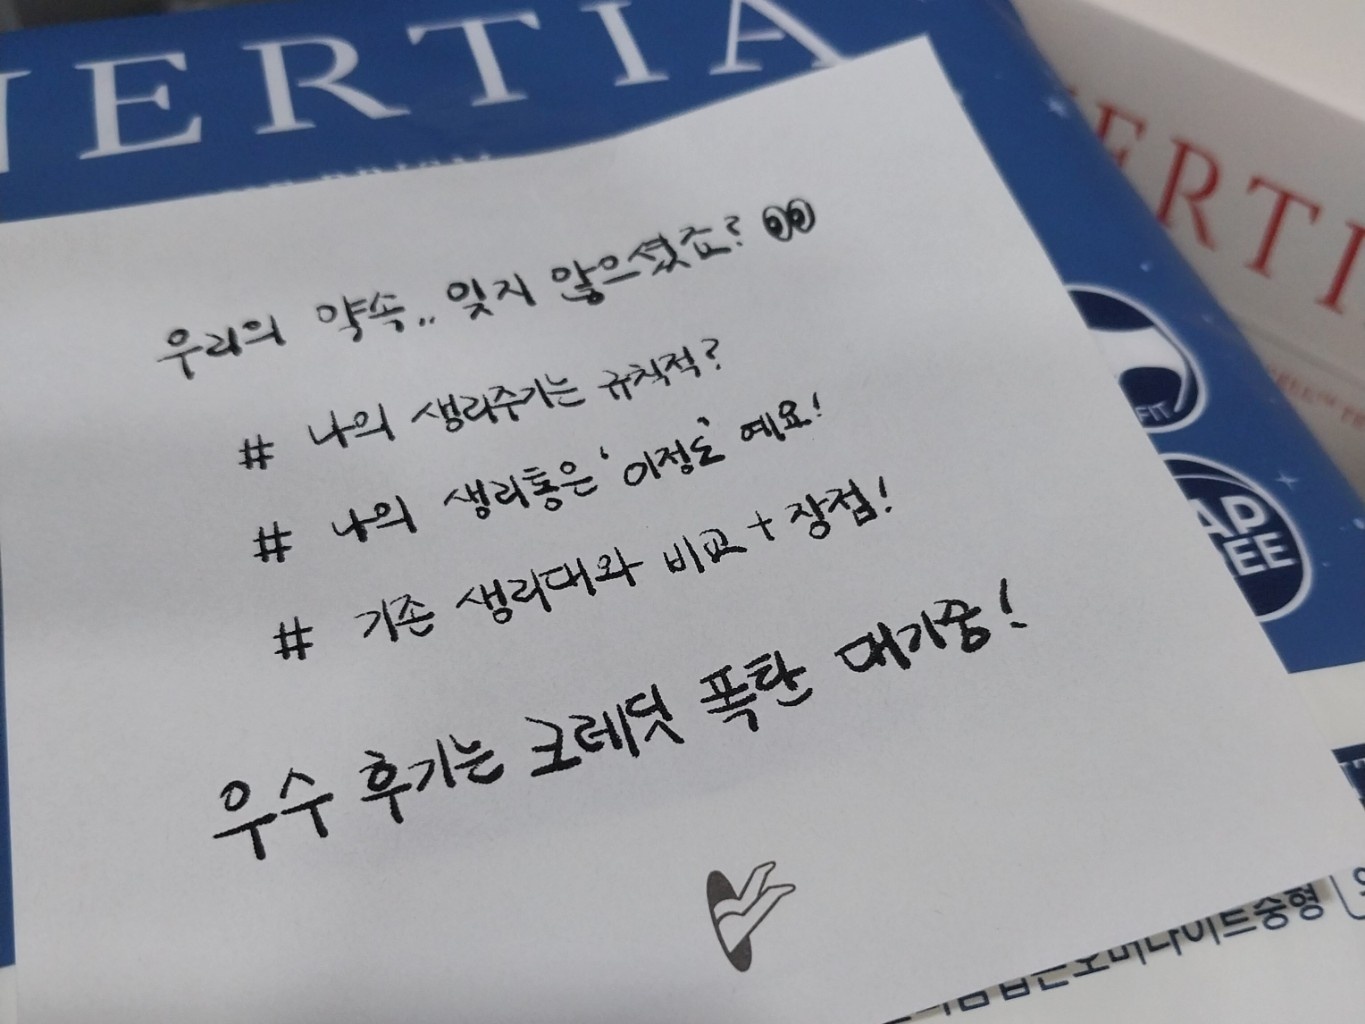 NERTIA
우리의 약속.. 잊지 않으셨죠? 👀
# 나의 생리주기는 규칙적?
# 나의 생리통은 '이정도' 예요!
# 기존 생리대와 비교 + 장점!
우수 후기는 크레딧 폭탄 대기중!
ERTI
FIT
AP
EE
오버나이트중형